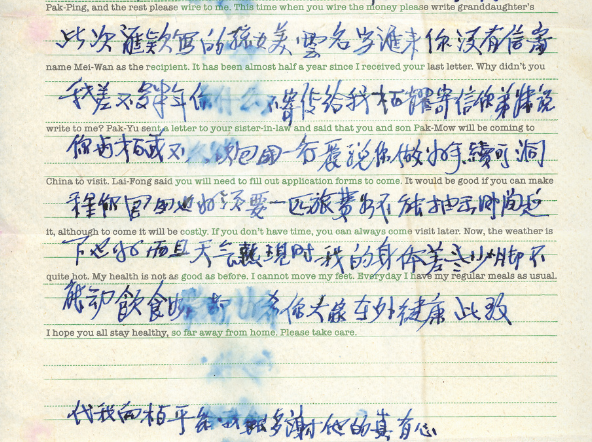 Pak-Ping, and the rest please wire to me. This time when you wire the money please write granddaughter's
此次滙款写的孫女美雲名字滙来你没有信寄
name Mei-Wan as the recipient. It has been almost half a year since I received your last letter. Why didn't you
我差不多半年你什么不寄信给我柏耀寄信你弟婦说
write to me? Pak-Yu sent a letter to your sister-in-law and said that you and son Pak-Mow will be coming to
你 柏茂 次回国一行 说你做 手續可
China to visit. Lai-Fong said you will need to fill out application forms to come. It would be good if you can make
程你 也好 要一 旅费 不能抽出时间迟
it, although to come it will be costly. If you don't have time, you can always come visit later. Now, the weather is
下也好而且天气熱現时我的身体差 小脚不
quite hot. My health is not as good as before. I cannot move my feet. Everyday I have my regular meals as usual.
能动飲食 希你大家在外健康 此致
I hope you all stay healthy, so far away from home. Please take care.
代我向柏平 我 多謝他的真有心